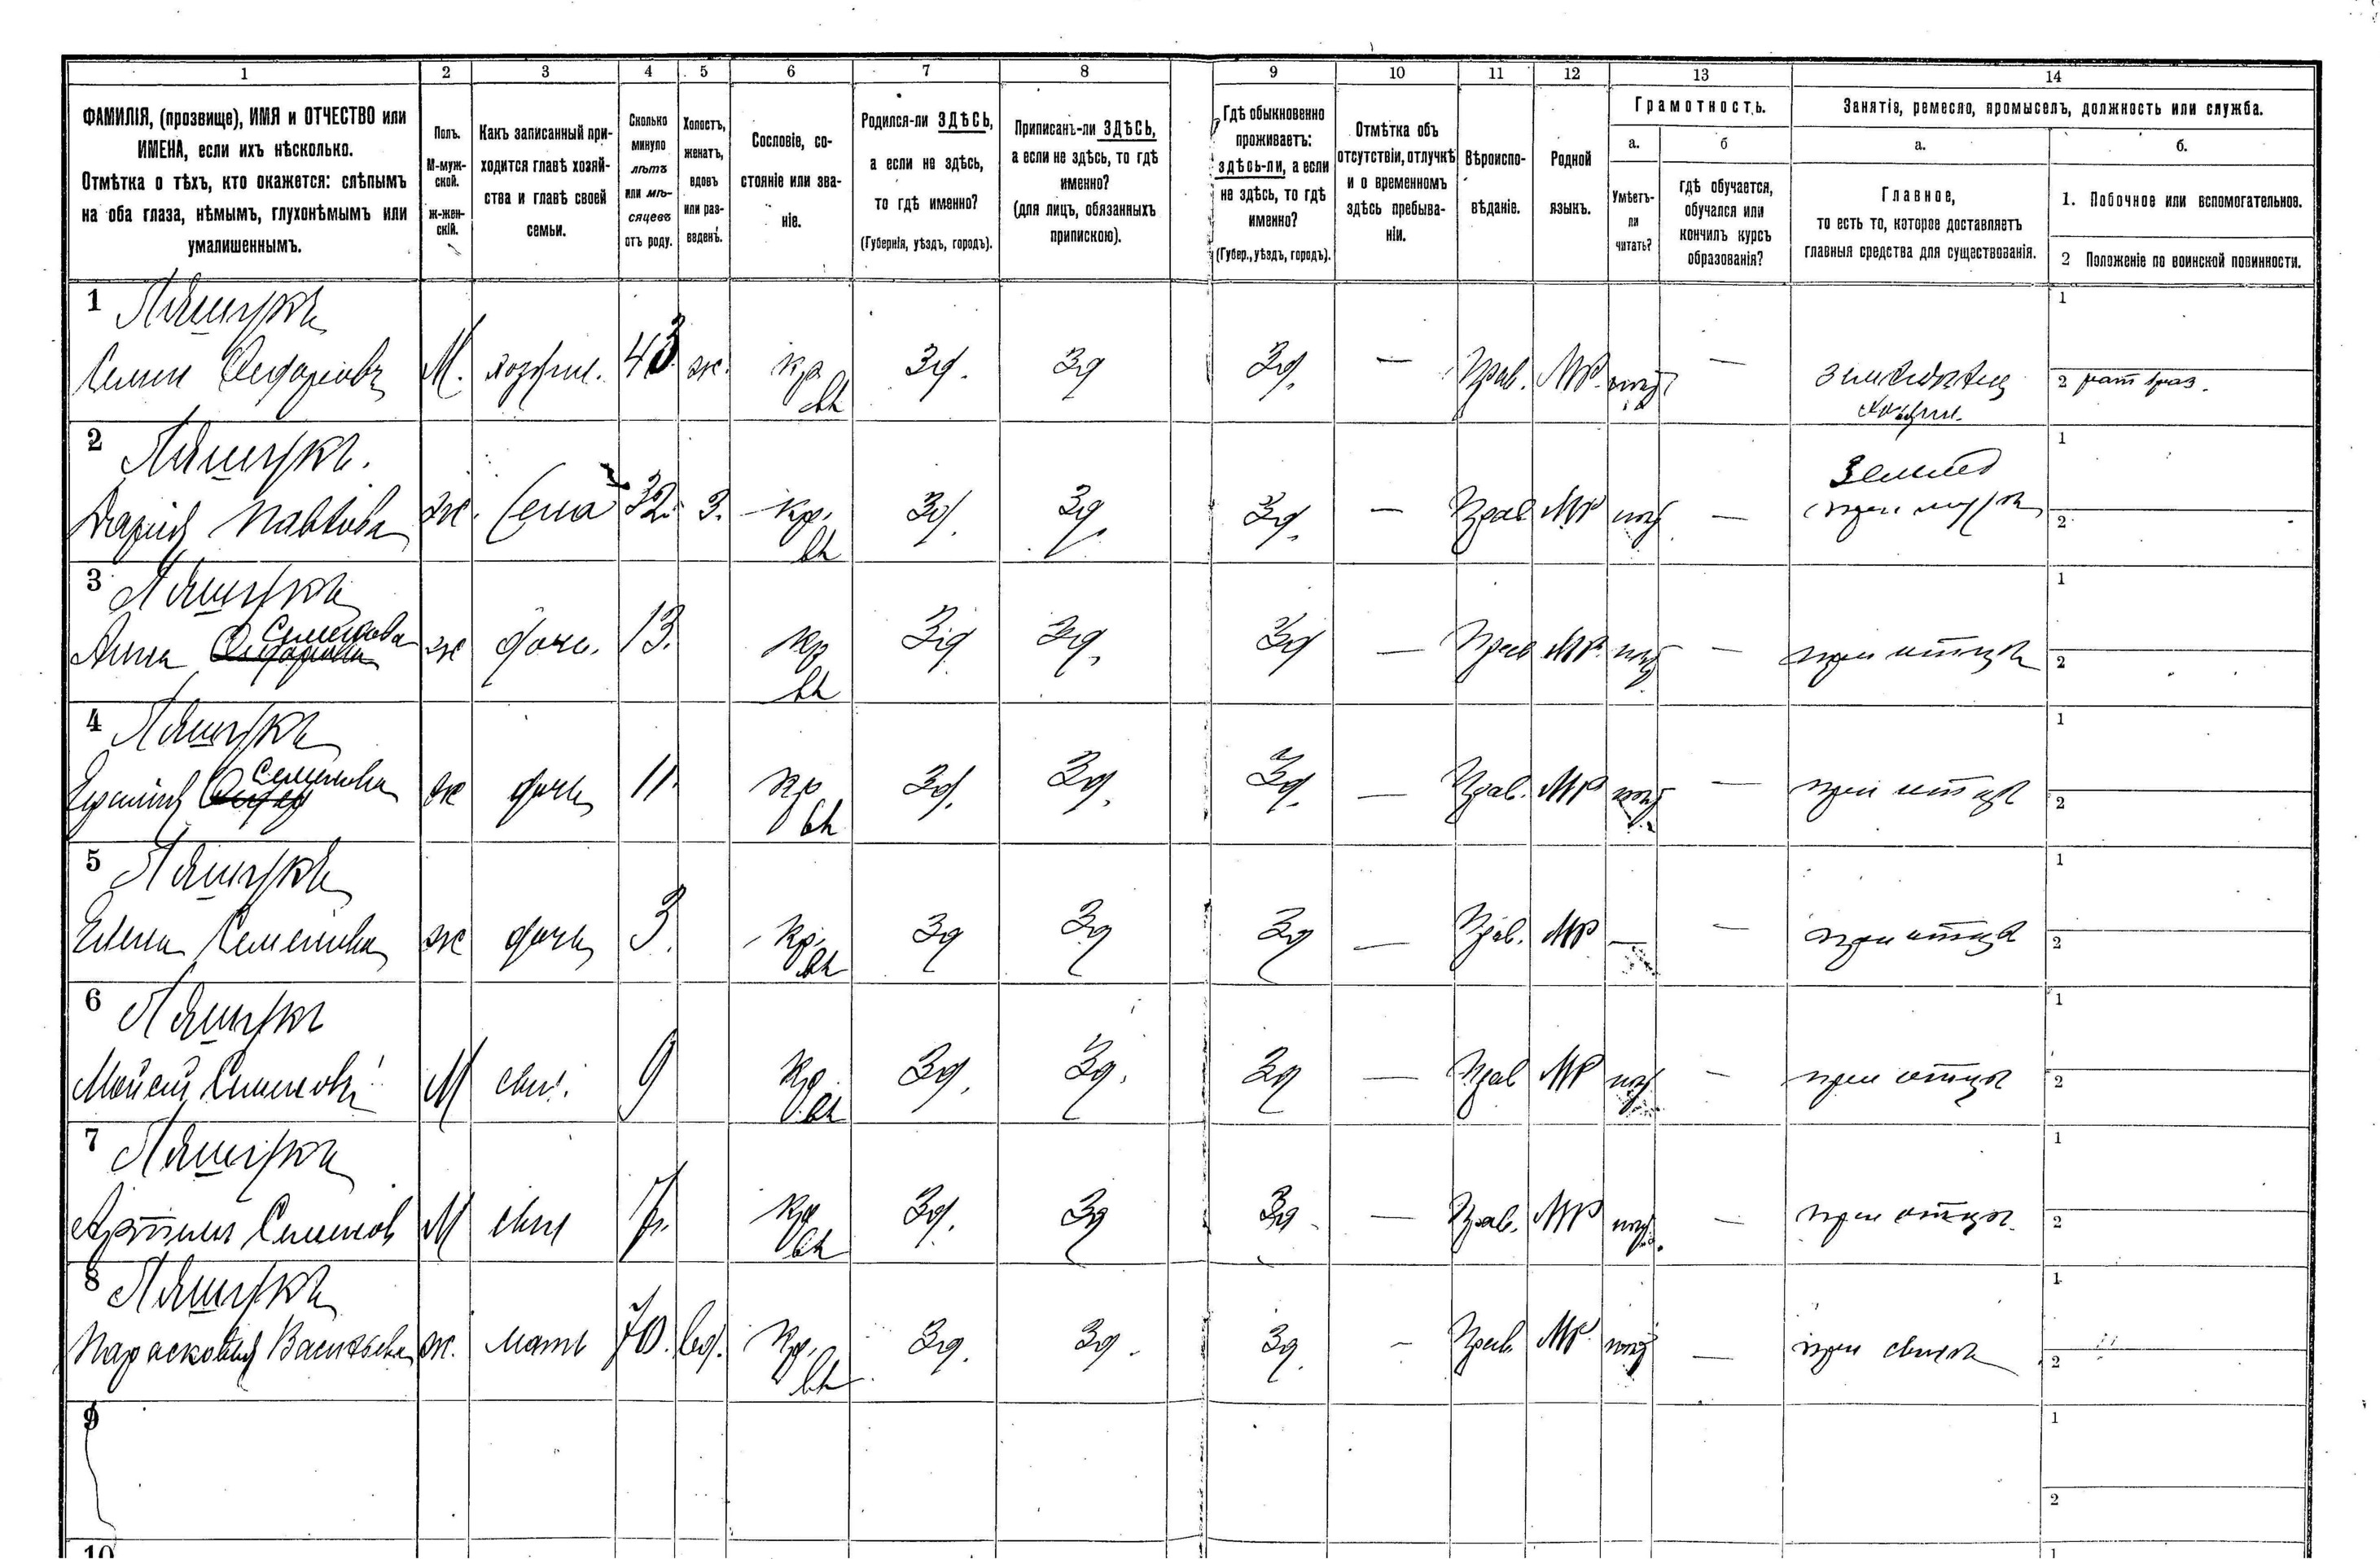 1 2 3 4 5 6 7 8 9 10 11 12 13 14
ФАМИЛІЯ, (прозвище), ИМЯ и ОТЧЕСТВО или
ИМЕНА, если ихъ нѣсколько.
Отмѣтка о тѣхъ, кто окажется: слѣпымъ
на оба глаза, нѣмымъ, глухонѣмымъ или
умалишеннымъ.
Полъ.
М-муж-
ской.
ж-жен-
скій.
Какъ записанный при-
ходится главѣ хозяй-
ства и главѣ своей
семьи.
Сколько
минуло
лѣтъ
или мѣ-
сяцевъ
отъ роду.
Холостъ,
женатъ,
вдовъ
или раз-
веденъ.
Сословіе, со-
стояніе или зва-
ніе.
Родился-ли ЗДѢСЬ,
а если не здѣсь,
то гдѣ именно?
(Губернія, уѣздъ, городъ).
Приписанъ-ли ЗДѢСЬ,
а если не здѣсь, то гдѣ
именно?
(для лицъ, обязанныхъ
припискою).
Гдѣ обыкновенно
проживаетъ:
здѣсь-ли, а если
не здѣсь, то гдѣ
именно?
(Губер., уѣздъ, городъ).
Отмѣтка объ
отсутствіи, отлучкѣ
и о временномъ
здѣсь пребыва-
ніи.
Вѣроиспо-
вѣданіе.
Родной
языкъ.
Грамотность.
а.
Умѣетъ-
ли
читать?
б
гдѣ обучается,
обучался или
кончилъ курсъ
образованія?
Занятія, ремесло, промыселъ, должность или служба.
а.
Главное,
то есть то, которое доставляетъ
главныя средства для существованія.
б.
1. Побочное или вспомогательное.
2 Положеніе по воинской повинности.
1 Ляшукъ
М. хозяин. 43 ж. кр. Зд. Зд Зд. — Прав. МР. — 1
2
2 Ляшукъ.
Дарія Павлова ж. жена 32 З. кр. Зд. Зд. Зд. — Прав МР — Земled 1
2
3 Ляшукъ
Анна Семенова ж дочь. 13. кр Зд Зд. Зд — Прав МР. — при отцѣ 1
2
4 Ляшукъ
Семенова ж дочь 11. кр Зд. Зд. Зд. — Прав. МР — при отцѣ 1
2
5 Ляшукъ
Елена Семенова ж дочь 3. кр. Зд Зд Зд — Прав. МР — — при отцѣ 1
2
6 Ляшукъ
Мойсей Семеновъ М сын. 9 кр Зд. Зд. Зд — Прав МР — при отцѣ 1
2
7 Ляшукъ
Семенов М сын 7. кр Зд. Зд Зд — Прав. МР — при отцѣ 1
2
8 Ляшукъ
Параскевия Васильева ж. мать 70. вд. кр. Зд. Зд. Зд. — Прав. МР. — при сынѣ 1
2
9 1
2
10 1